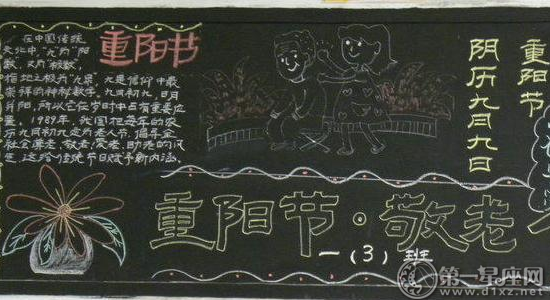 在中国传统
文化中,"九"为"阳
数,又为"极数",
指地之极为"九泉",九是信仰中最
崇祥的神秘数字,九月初九,日月
并阳,所以它在岁时中占有重要位
置,1989年,我国把每年的农
历九月初九定为老人节,倡导全
社会尊老、敬老、爱老、助老的风
这给传统节日赋予新内涵。
重阳节
重阳节
阴历九月九日
重阳节·敬老
一(3)班
第一星座网
www.d1xz.net